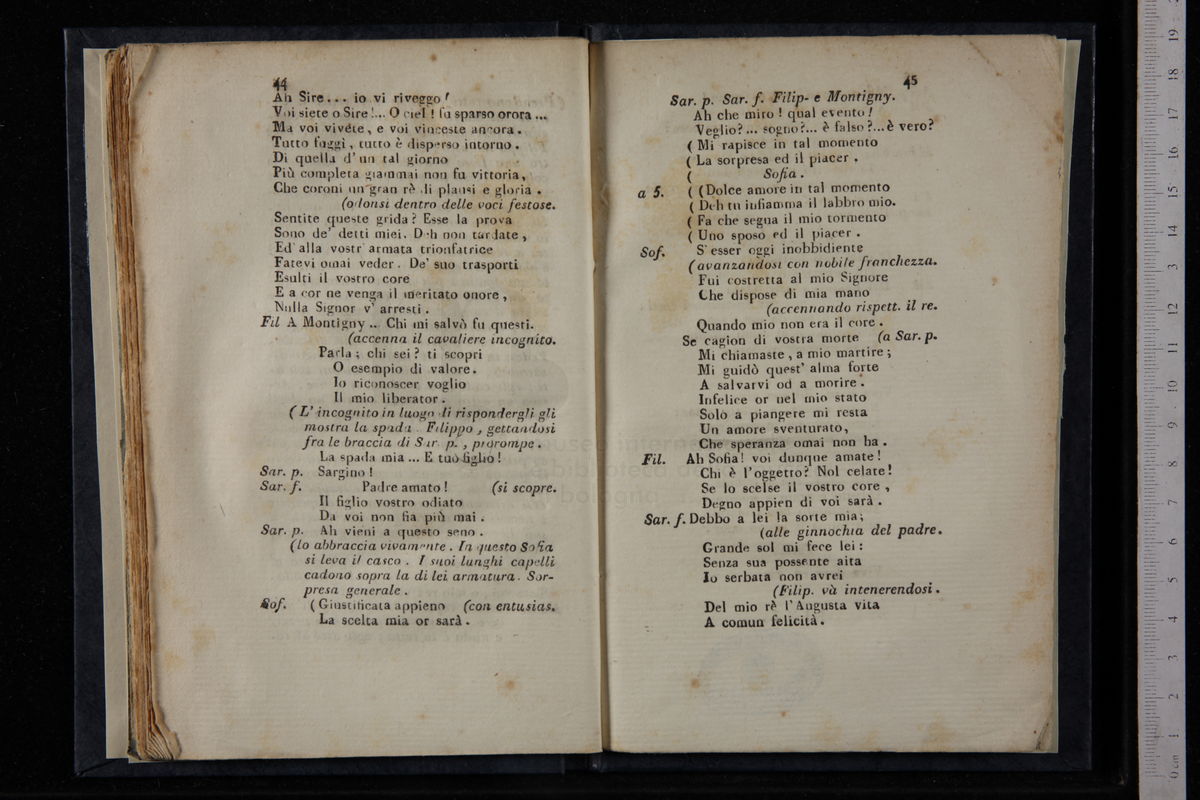 44
Ah Sire... io vi riveggo!
Voi siete o Sire!... O ciel! fu sparso orora ...
Ma voi vivéte, e voi vinceste ancora.
Tutto fuggì, tutto è disperso intorno.
Di quella d'un tal giorno
Più completa giammai non fu vittoria,
Che coroni un gran rè di plausi e gloria.
(odonsi dentro delle voci festose.
Sentite queste grida? Esse la prova
Sono de' detti miei. Deh non tardate,
Ed alla vostr'armata trionfatrice
Fatevi omai veder. De' suo trasporti
Esulti il vostro core
E a cor ne venga il meritato onore,
Nulla Signor v'arresti.
Fil A Montigny ... Chi mi salvò fu questi.
(accenna il cavaliere incognito.
Parla; chi sei? ti scopri
O esempio di valore.
Io riconoscer voglio
Il mio liberator.
(L'incognito in luogo di rispondergli gli
mostra la spada. Filippo, gettandosi
fra le braccia di Sar. p., prorompe.
La spada mia ... E tuo figlio!
Sar. p. Sargino!
Sar. f. Padre amato! (si scopre.
Il figlio vostro odiato
Da voi non fia più mai.
Sar. p. Ah vieni a questo seno.
(lo abbraccia vivamente. In questo Sofia
si leva il casco. I suoi lunghi capelli
cadono sopra la di lei armatura. Sor-
presa generale.
Sof. (Giustificata appieno (con entusias.
La scelta mia or sarà.
45
Sar. p. Sar. f. Filip. e Montigny.
Ah che miro! qual evento!
Veglio?... sogno?... è falso?...è vero?
( Mi rapisce in tal momento
( La sorpresa ed il piacer.
( Sofia.
a 5. ( (Dolce amore in tal momento
( Deh tu infiamma il labbro mio.
( Fa che segua il mio tormento
( Uno sposo ed il piacer.
Sof. S'esser oggi inobbidiente
(avanzandosi con nobile franchezza.
Fui costretta al mio Signore
Che dispose di mia mano
(accennando rispett. il re.
Quando mio non era il core.
Se cagion di vostra morte (a Sar. p.
Mi chiamaste, a mio martire;
Mi guidò quest'alma forte
A salvarvi od a morire.
Infelice or nel mio stato
Solo a piangere mi resta
Un amore sventurato,
Che speranza omai non ha.
Fil. Ah Sofia! voi dunque amate!
Chi è l'oggetto? Nol celate!
Se lo scelse il vostro core,
Degno appien di voi sarà.
Sar. f. Debbo a lei la sorte mia;
(alle ginnochia del padre.
Grande sol mi fece lei:
Senza sua possente aita
Io serbata non avrei
(Filip. và intenerendosi.
Del mio rè l'Augusta vita
A comun felicità.